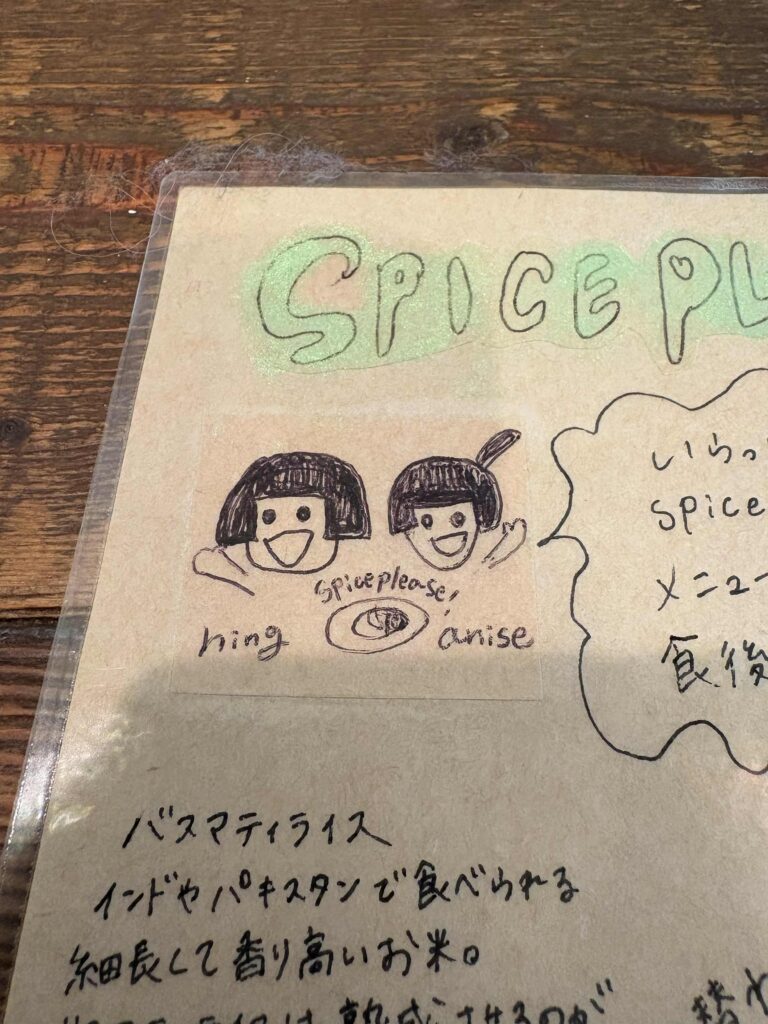 SPICE PL
いらっ
spice
メニュー
食後
spiceplease,
hing
anise
バスマティライス
インドやパキスタンで食べられる
細長くて香り高いお米。
熟成させるのが
替わ